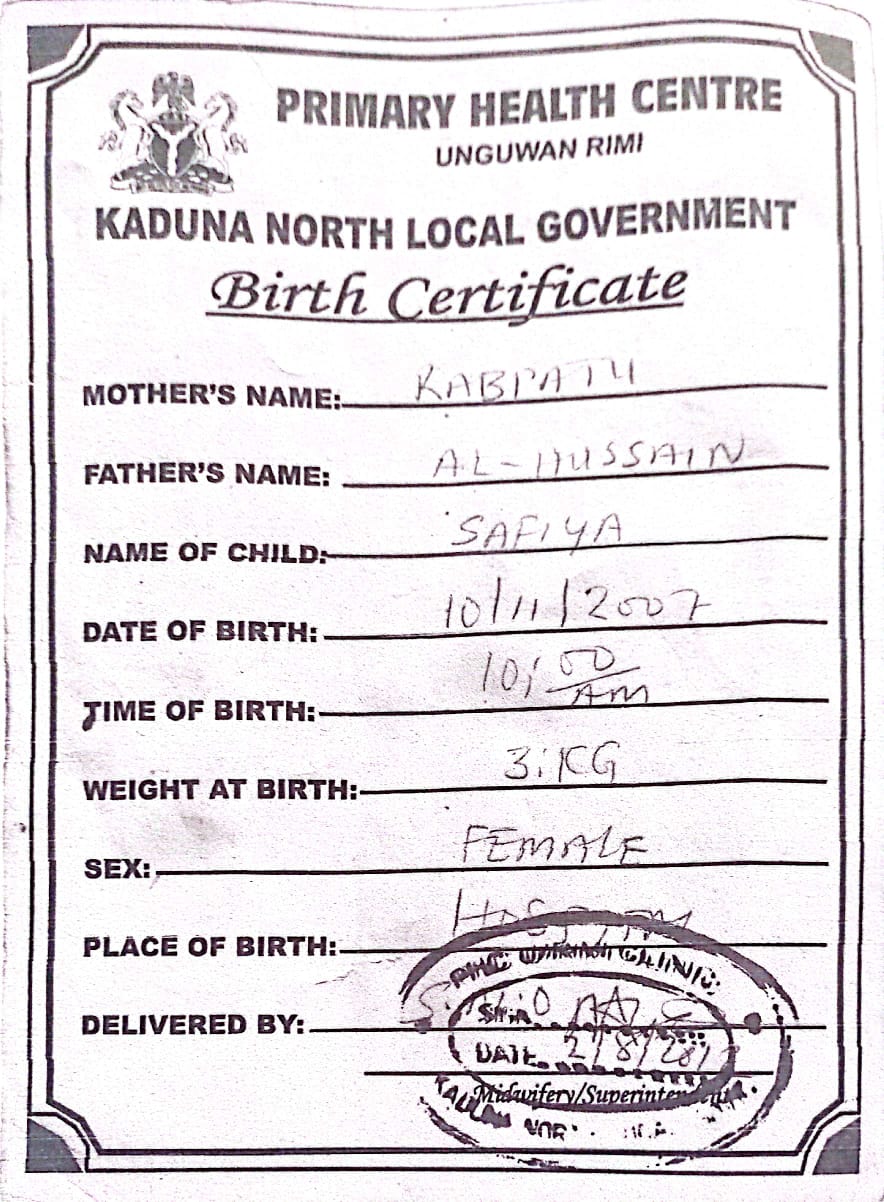 PRIMARY HEALTH CENTRE
UNGUWAN RIMI
KADUNA NORTH LOCAL GOVERNMENT
Birth Certificate
MOTHER'S NAME:
FATHER'S NAME: AL-HUSSAIN
NAME OF CHILD: SAFIYA
DATE OF BIRTH: 10/11/2007
TIME OF BIRTH: 10:00 AM
WEIGHT AT BIRTH: 3.KG
SEX: FEMALE
PLACE OF BIRTH:
PHC CLINIC
DELIVERED BY:
SIGN
DATE
Midwifery/Superintendent